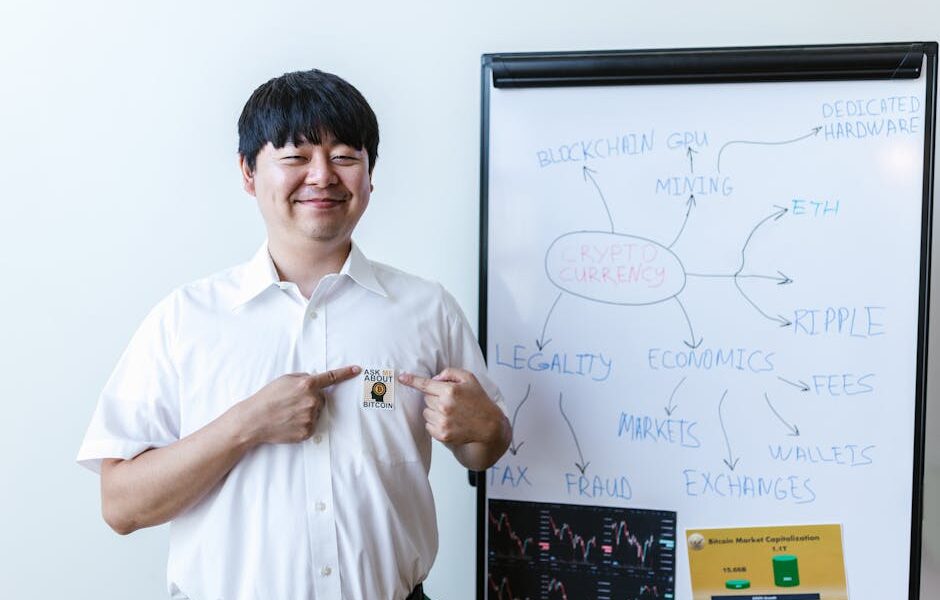 ASK ME
ABOUT
BITCOIN
DEDICATED
HARDWARE
BLOCKCHAIN
GPU
MINING
ETH
CRYPTO
CURRENCY
RIPPLE
LEGALITY
ECONOMICS
FEES
MARKETS
WALLETS
TAX
FRAUD
EXCHANGES
Bitcoin Market Capitalization
1.1T
15.66B